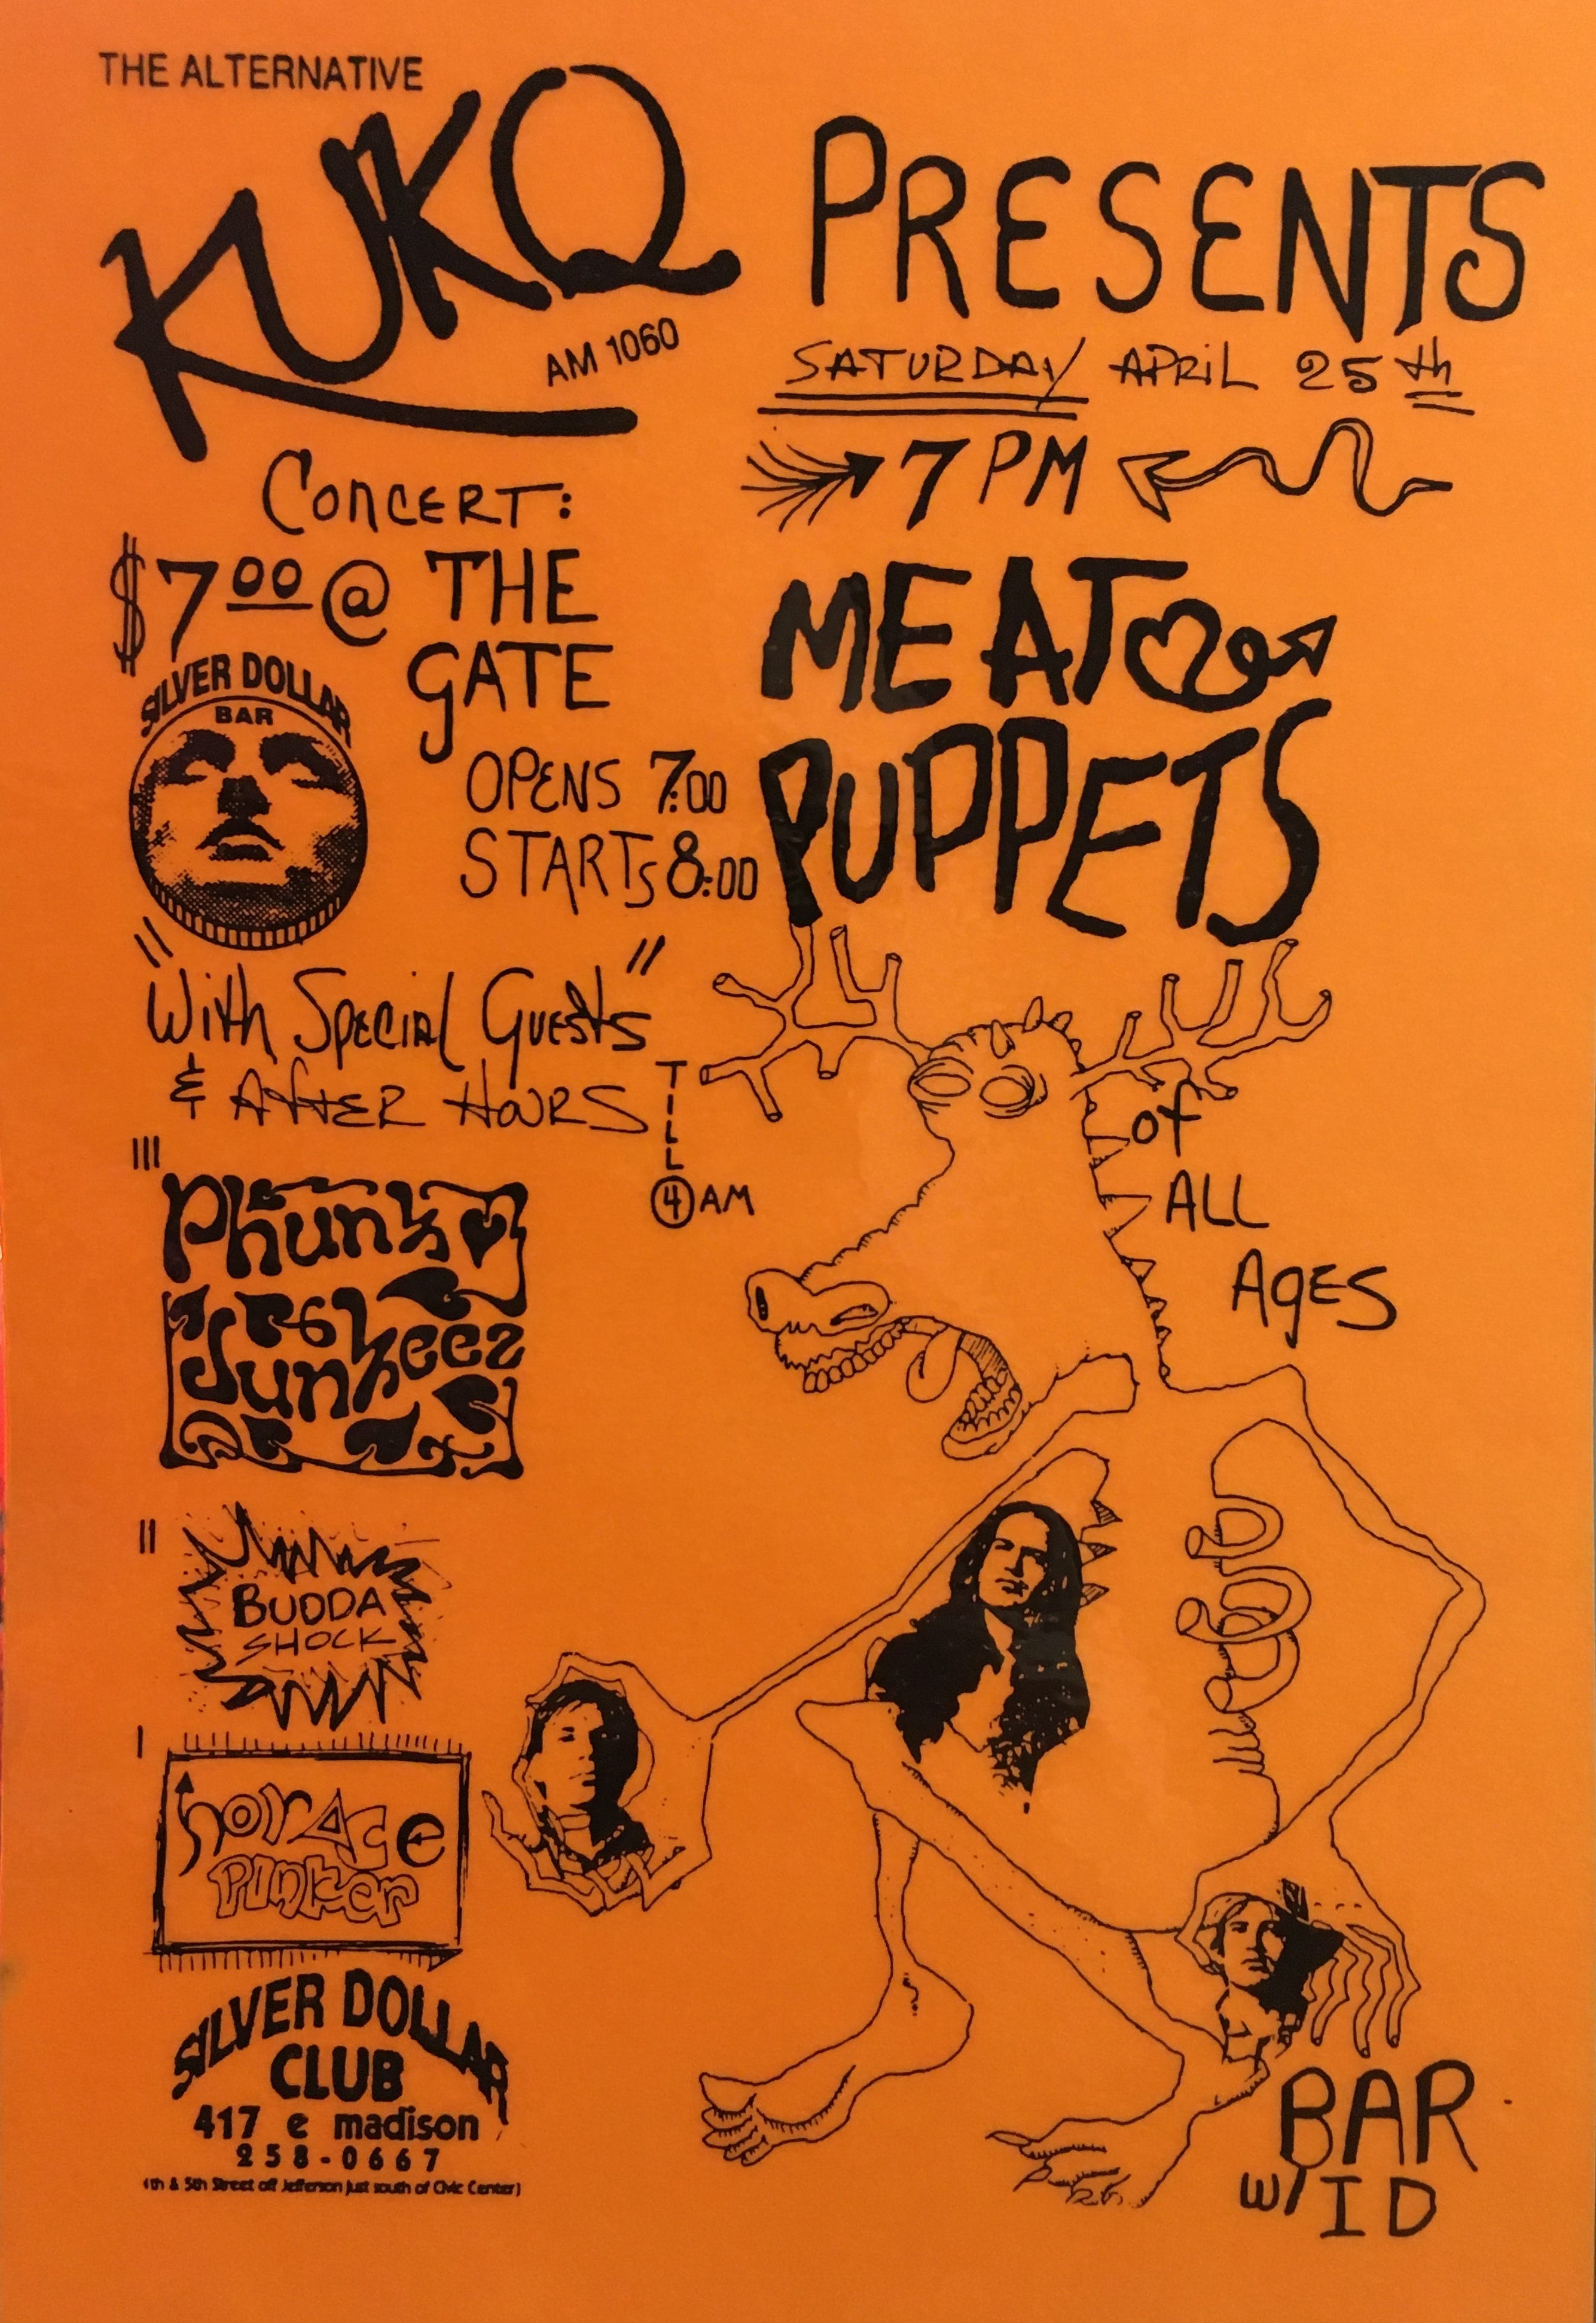 THE ALTERNATIVE
KUKQ
AM 1060
PRESENTS
SATURDAY APRiL 25th
7 PM
CONCERT:
$7.00 @ THE
GATE
SILVER DOLLAR
BAR
OPENS 7:00
STARTS 8:00
MEAT
PUPPETS
"With Special Guests"
& AFTER HOURS
TILL
4 AM
of
ALL
AGES
III
Phunk
Junkeez
II
BUDDA
SHOCK
I
horace
Pinker
SILVER DOLLAR
CLUB
417 e madison
258-0667
4th & 5th Street off Jefferson just south of Civic Center)
BAR
w/ ID